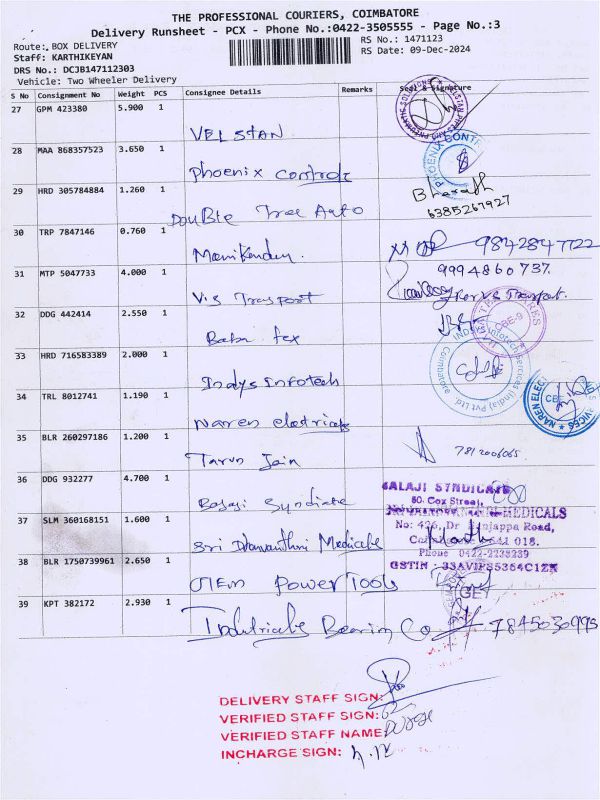 THE PROFESSIONAL COURIERS, COIMBATORE
Delivery Runsheet - PCX - Phone No.:0422-3505555 - Page No.:3
Route: BOX DELIVERY
RS No.: 1471123
Staff: KARTHIKEYAN
RS Date: 09-Dec-2024
DRS No.: DCJB147112303
Vehicle: Two Wheeler Delivery
S No Consignment No Weight PCS Consignee Details Remarks Seal & Signature
27 GPM 423380 5.900 1
VELSTAN
28 MAA 868357523 3.650 1
Phoenix Controls
PHOENIX CONTR
29 HRD 305784884 1.260 1
Double Tree Auto
Bharath
6385267927
30 TRP 7847146 0.760 1
Manikandan.
9842847722
31 MTP 5047733 4.000 1
9994860737.
V.S Trasport
Transport.
32 DDG 442414 2.550 1
Baba tex
CBE-9
33 HRD 716583389 2.000 1
Indys Infotech
34 TRL 8012741 1.190 1
Naren electricals
NAREN ELEC
35 BLR 260297186 1.200 1
Tarun Jain
7812006065.
36 DDG 932277 4.700 1
BALAJI SYNDICATE
60, Cox Street,
Balaji Syndicate
37 SLM 360168151 1.600 1
MEDICALS
No: 426, Dr Nanjappa Road,
Sri Dhanvanthri Medicals
641 018.
Phone 0422-2235239
38 BLR 1750739961 2.650 1
GSTIN : 33AVIFS5364C1ZK
OTEM Power Tools
39 KPT 382172 2.930 1
Industrials Bearing Co
7845030995
DELIVERY STAFF SIGN:
VERIFIED STAFF SIGN:
VERIFIED STAFF NAME:
INCHARGE SIGN: